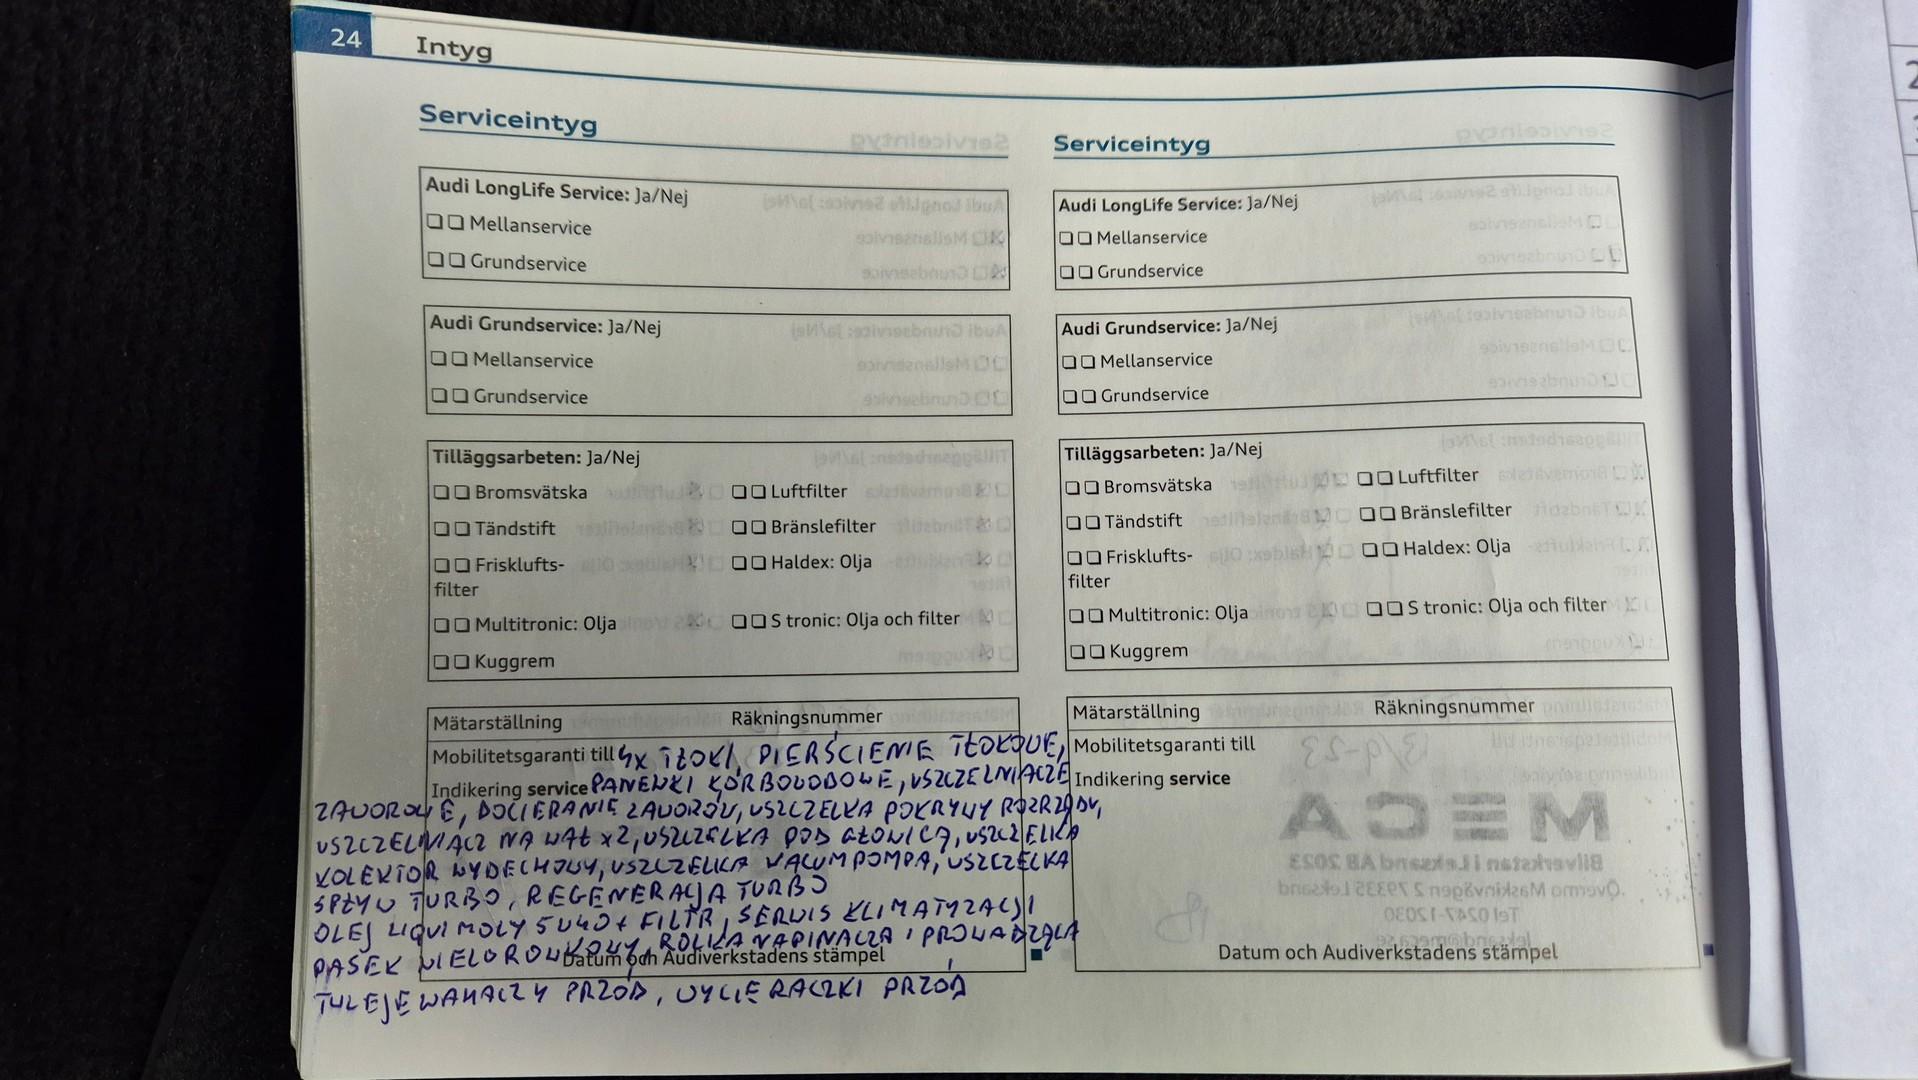 24 Intyg
Serviceintyg
Audi LongLife Service: Ja/Nej
❏ ❏ Mellanservice
❏ ❏ Grundservice
Audi Grundservice: Ja/Nej
❏ ❏ Mellanservice
❏ ❏ Grundservice
Tilläggsarbeten: Ja/Nej
❏ ❏ Bromsvätska ❏ ❏ Luftfilter
❏ ❏ Tändstift ❏ ❏ Bränslefilter
❏ ❏ Friskllufts- ❏ ❏ Haldex: Olja
filter
❏ ❏ Multitronic: Olja ❏ ❏ S tronic: Olja och filter
❏ ❏ Kuggrem
Mätarställning Räkningsnummer
Mobilitetsgaranti till 4x TŁOKI, PIERŚCIENIE TŁOKOWE,
Indikering service PANEWKI KORBOWODOWE, USZCZELNIACZE
ZAWOROWE, DOCIERANIE ZAWORÓW, USZCZELKA POKRYWY ROZRZĄDU,
USZCZELNIACZ NA WAŁ x2, USZCZELKA POD GŁOWICĄ, USZCZELKA
KOLEKTOR WYDECHOWY, USZCZELKA WACUMPOMPA, USZCZELKA
SPŁYW TURBO, REGENERACJA TURBO
OLEJ LIQUI MOLY 5W40 + FILTR, SERWIS KLIMATYZACJI
PASEK WIELOROWKOWY, ROLKA NAPINACZA I PROWADZĄCA
Datum och Audiverkstadens stämpel
TULEJE WAHACZY PRZÓD, WYCIERACZKI PRZÓD
Serviceintyg
Audi LongLife Service: Ja/Nej
❏ ❏ Mellanservice
❏ ❏ Grundservice
Audi Grundservice: Ja/Nej
❏ ❏ Mellanservice
❏ ❏ Grundservice
Tilläggsarbeten: Ja/Nej
❏ ❏ Bromsvätska ❏ ❏ Luftfilter
❏ ❏ Tändstift ❏ ❏ Bränslefilter
❏ ❏ Friskلufts- ❏ ❏ Haldex: Olja
filter
❏ ❏ Multitronic: Olja ❏ ❏ S tronic: Olja och filter
❏ ❏ Kuggrem
Mätarställning Räkningsnummer
Mobilitetsgaranti till
Indikering service
Datum och Audiverkstadens stämpel